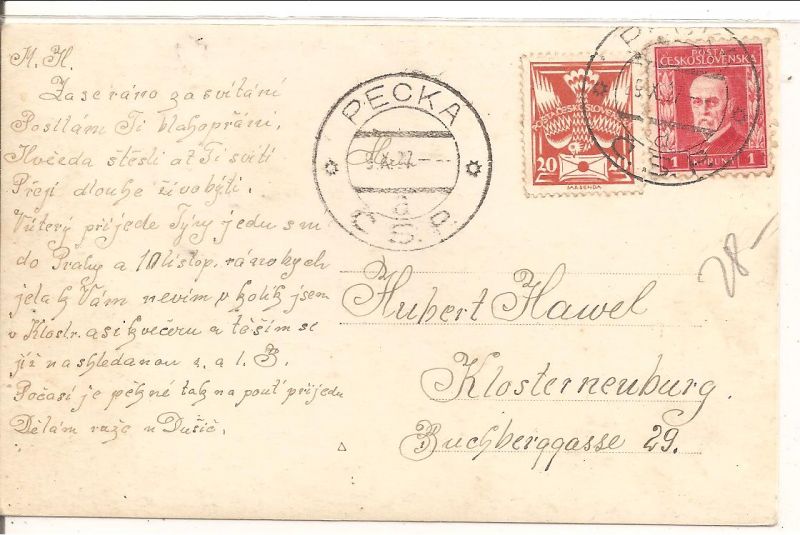 M. H.
Zase ráno za svítání
Posílám Ti blahopřání,
Hvězda štěstí ať Ti svítí
Přeji dlouhe živobýti.
V úterý přijede Týny jedu s m
do Prahy a 10 listop. ráno bych
jela k Vám nevím v kolik jsem
v Klostr. asi k večeru a těším se
již na shledanou s. a l. B.
Počasí je pěkné tak na pouti přijedu
Dělám raže u Dušič.
PECKA
9.XI.27
a
Č.S.P.
POŠTA ČESKOSLOVENSKÁ
20 20
POŠTA
ČESKOSLOVENSKÁ
1 KORUNA 1
Hubert Hawel
Klosterneuburg.
Buchberggasse 29.
28-